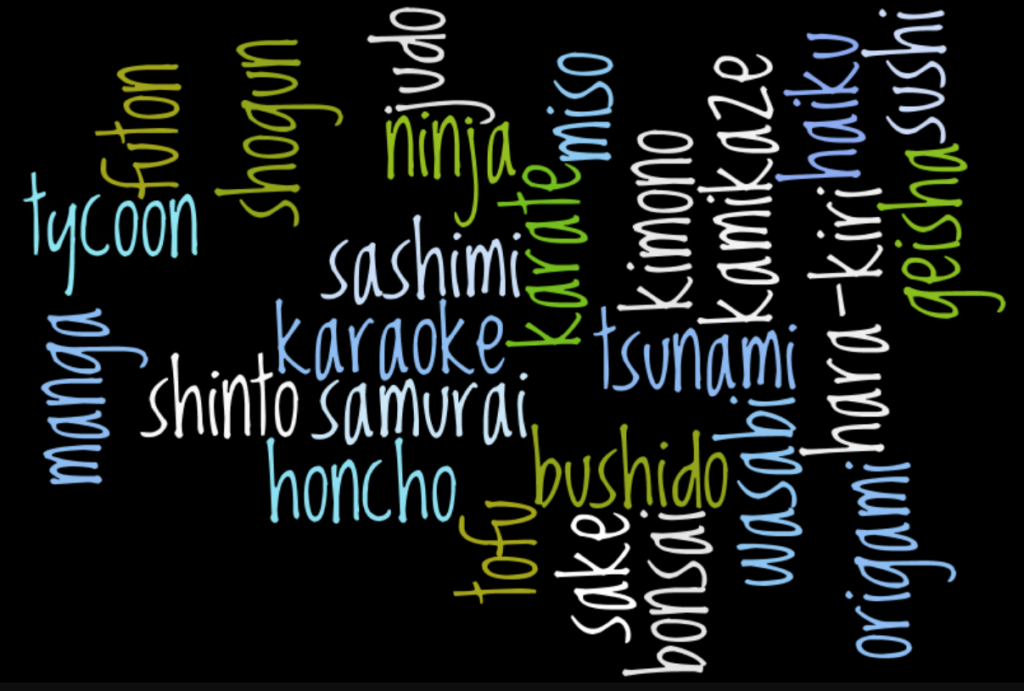 futon
shogun
judo
ninja
miso
kimono
kamikaze
haiku
sushi
tycoon
karate
geisha
sashimi
hara-kiri
karaoke
tsunami
manga
shinto
samurai
wasabi
honcho
bushido
origami
tofu
sake
bonsai